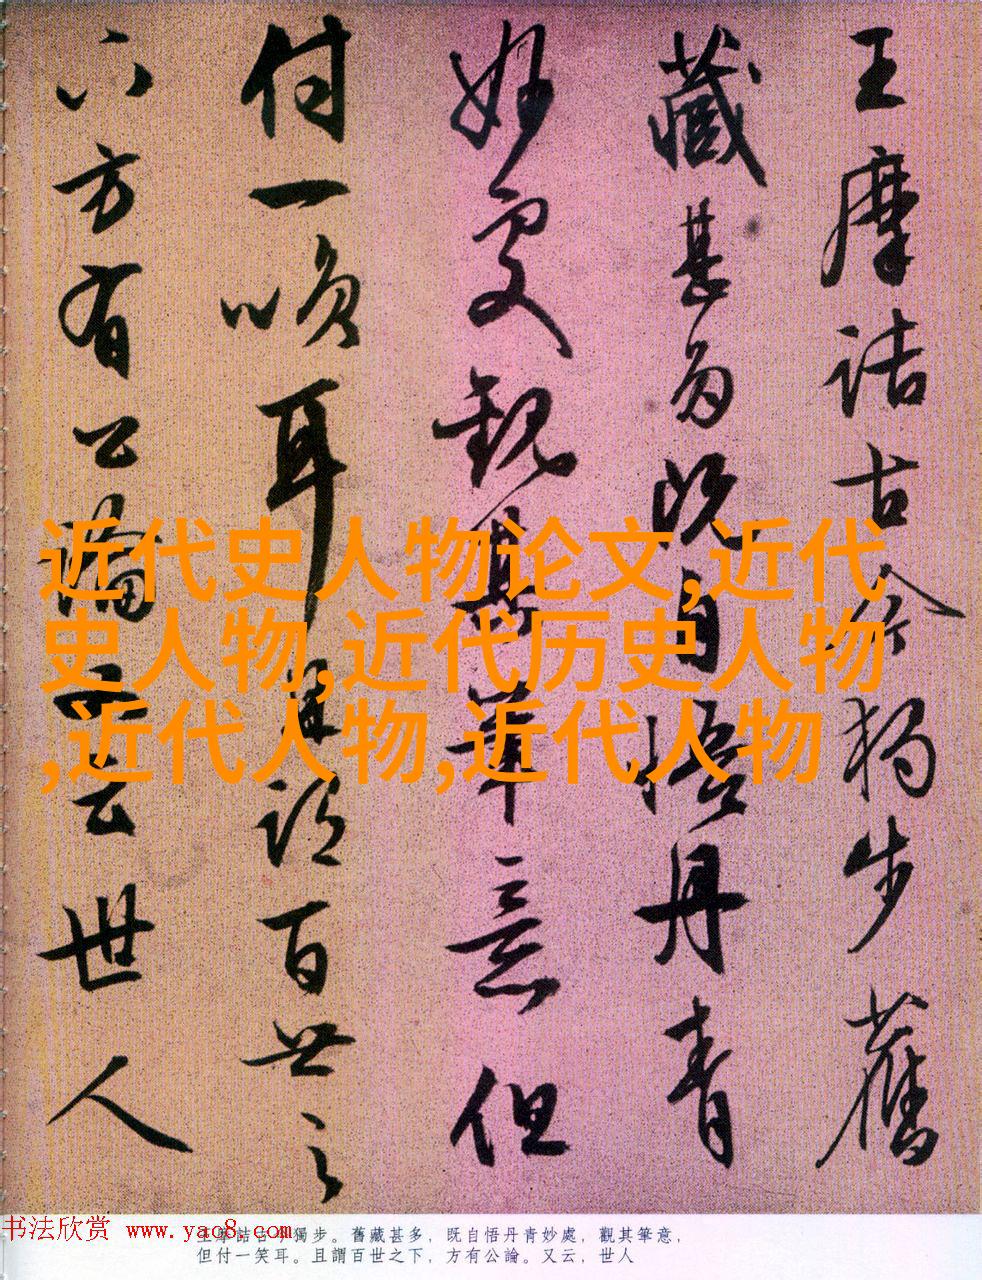 王摩詰古今獨步舊
藏甚多既自悟丹青
妙處觀其筆意但
付一咲耳且謂百世之
下方有公論又云世人
近代史人物论文,近代
史人物,近代历史人物
,近代人物,近代人物
书法欣赏 www.yac8.com
王摩詰古今獨步。舊藏甚多，既自悟丹青妙處，觀其筆意，
但付一笑耳。且謂百世之下，方有公論。又云，世人